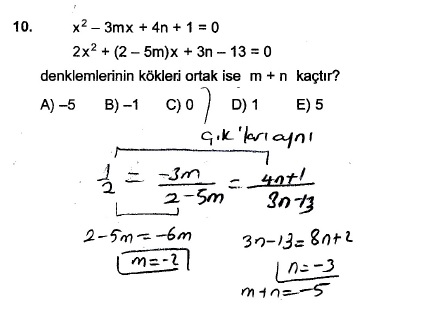 10. x² – 3mx + 4n + 1 = 0
2x² + (2 – 5m)x + 3n – 13 = 0
denklemlerinin kökleri ortak ise m + n kaçtır?
A) –5 B) –1 C) 0 D) 1 E) 5
Ç.ık'ları aynı
1/2 = -3m/2-5m = 4n+1/3n-13
2-5m = -6m
m=-2
3n-13=8n+2
n=-3
m+n=-5